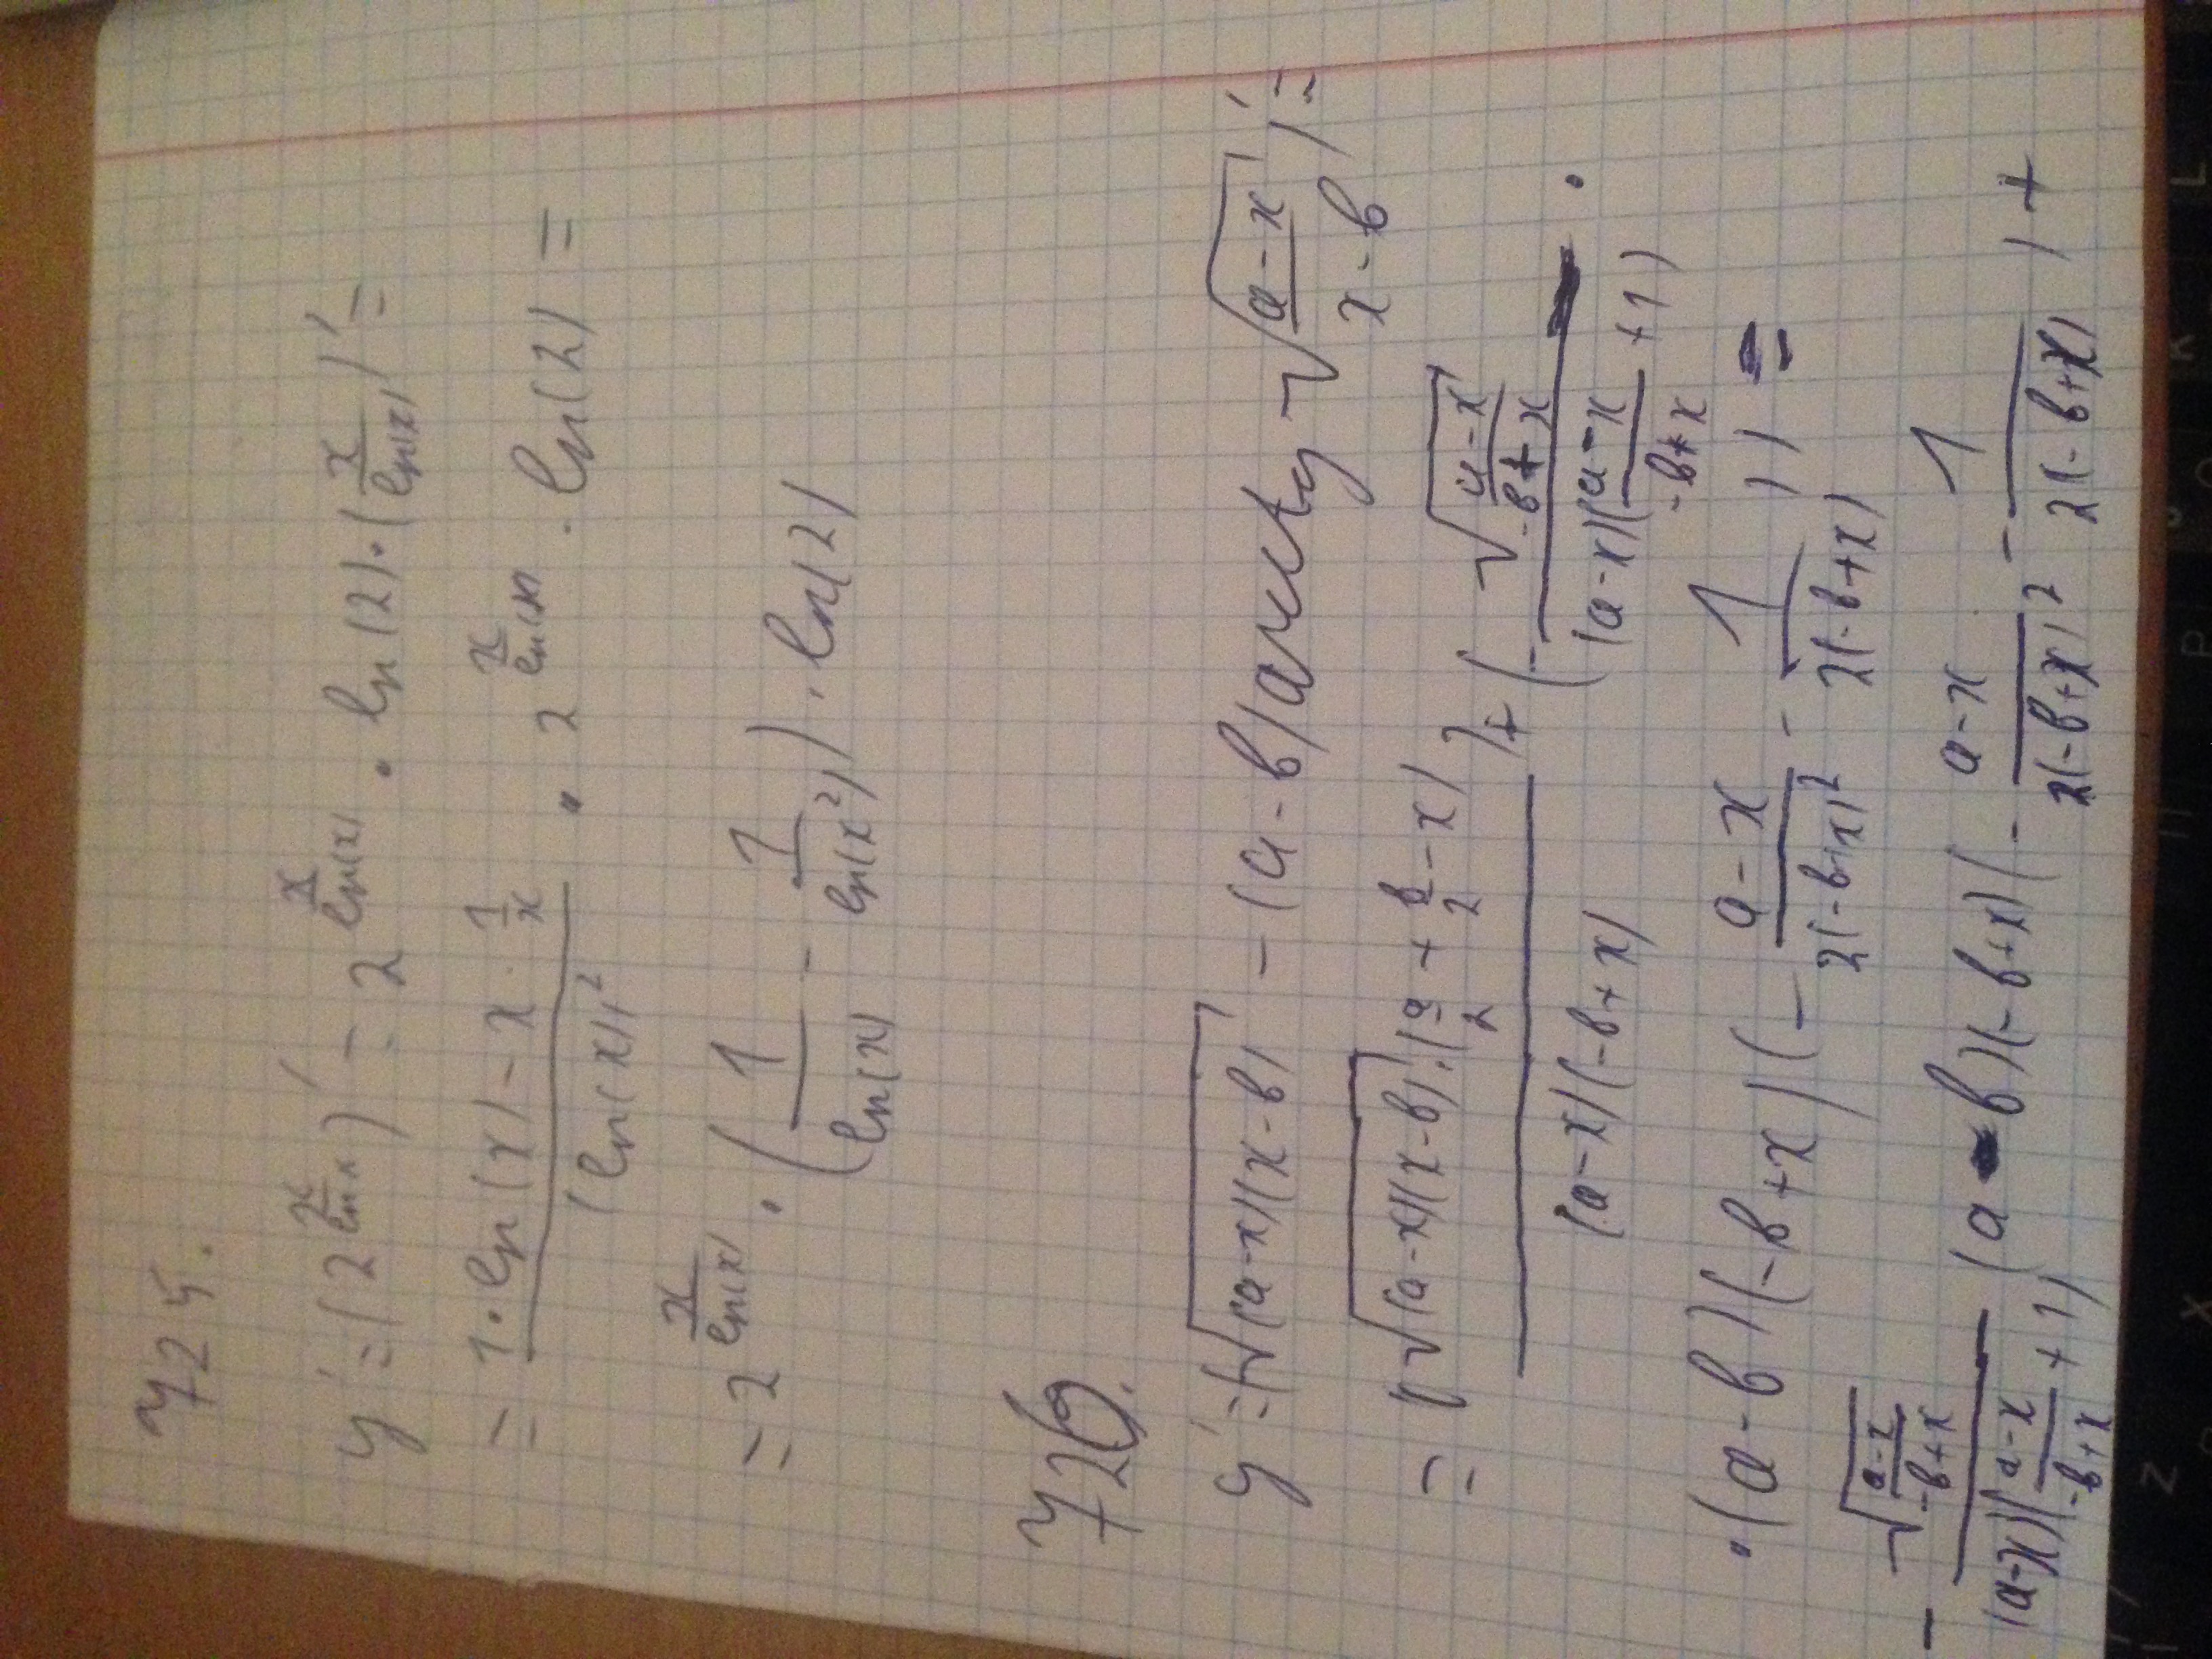 725.
y' = (2^{\frac{x}{ln x}})' = 2^{\frac{x}{ln(x)}} · ln(2) · (\frac{x}{ln(x)})' =
= \frac{1 · ln(x) - x · \frac{1}{x}}{(ln(x))^2} · 2^{\frac{x}{ln(x)}} · ln(2) =
= 2^{\frac{x}{ln(x)}} · (\frac{1}{ln(x)} - \frac{1}{ln(x^2)}) · ln(2)
726.
y' = (\sqrt{(a-x)(x-в)} - (a-в) arctg \sqrt{\frac{a-x}{x-в}})' =
= (\frac{\sqrt{(a-x)(x-в)} · (\frac{a}{2} + \frac{в}{2} - x)}{(a-x)(-в+x)}) + (-\frac{\sqrt{\frac{a-x}{-в+x}}}{(a-x)(\frac{a-x}{-в+x} + 1)} ·
· (a-в)(-в+x)(-\frac{a-x}{2(-в+x)^2} - \frac{1}{2(-в+x)})) =
- \frac{\sqrt{\frac{a-x}{-в+x}}}{(a-x)(\frac{a-x}{-в+x} + 1)} (a-в)(-в+x)(-\frac{a-x}{2(-в+x)^2} - \frac{1}{2(-в+x)}) +
Z
X
P
K
L